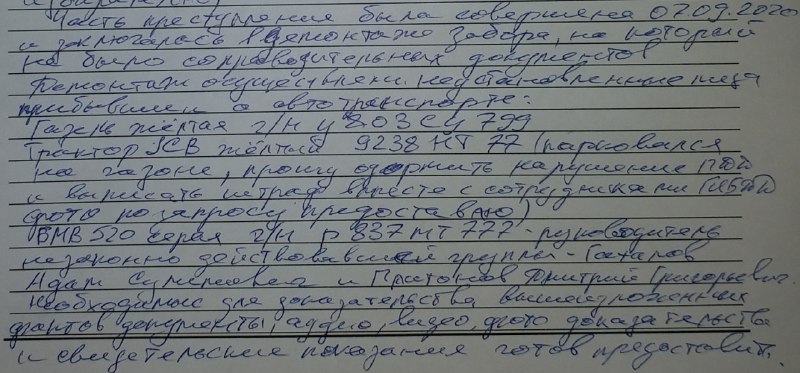 Часть преступления была совершена 07.09.2020
и заключалась в демонтаже забора, на который
не было сопроводительных документов
Демонтаж осуществляли неустановленные лица
прибывшие на автотранспорте:
Газель жёлтая г/н у 803 су 799
Трактор JCB жёлтый 9238 НТ 77 (парковался
на газоне, прошу оформить нарушение ПДД
и выписать штраф вместе с сотрудниками ГИБДД
фото по запросу предоставлю)
БМВ 520 серая г/н р 837 мт 777 - руководитель
незаконно действовавшей группы -
Адам и Дмитрий Григорьевич.
Необходимые для доказательства вышеизложенных
фактов документы, аудио, видео, фото доказательства
и свидетельские показания готов предоставить.